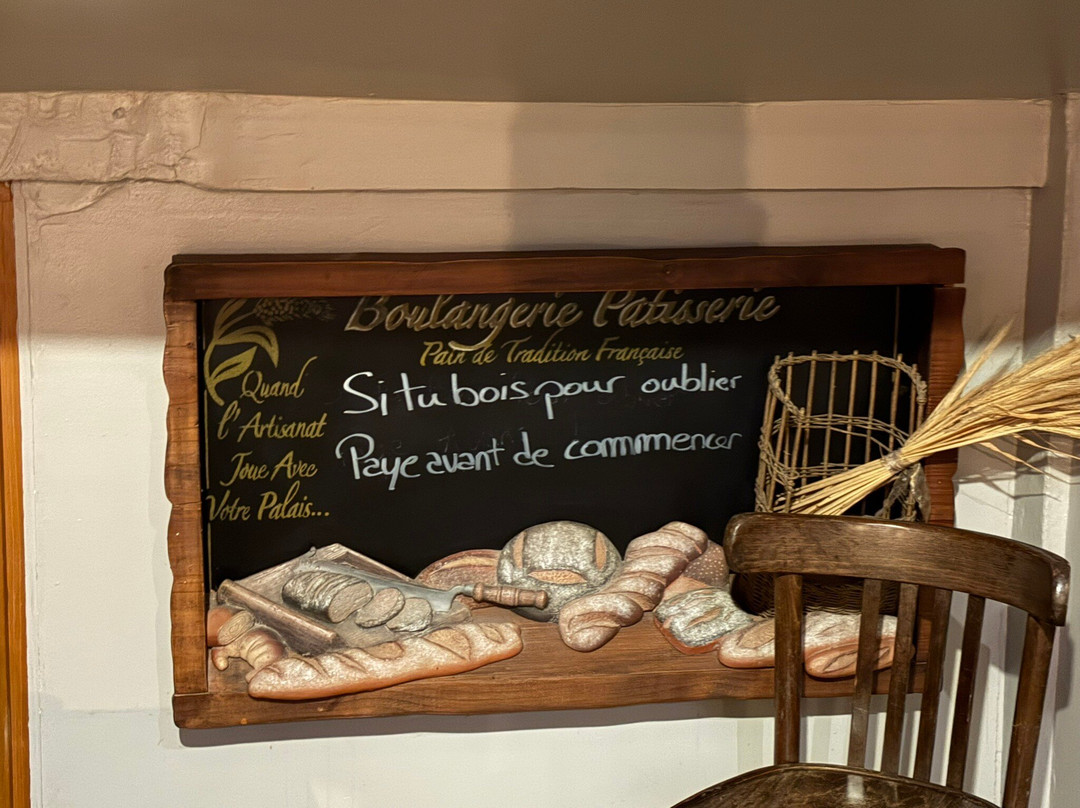 Boulangerie Patisserie
Pain de Tradition Française
Si tu bois pour oublier
Paye avant de commmencer
Quand
l'Artisanat
Joue Avec
Votre Palais...